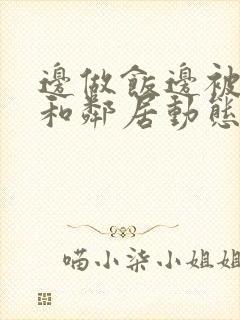 邊做飯邊被
和鄰居動態
喵小柒小姐姐